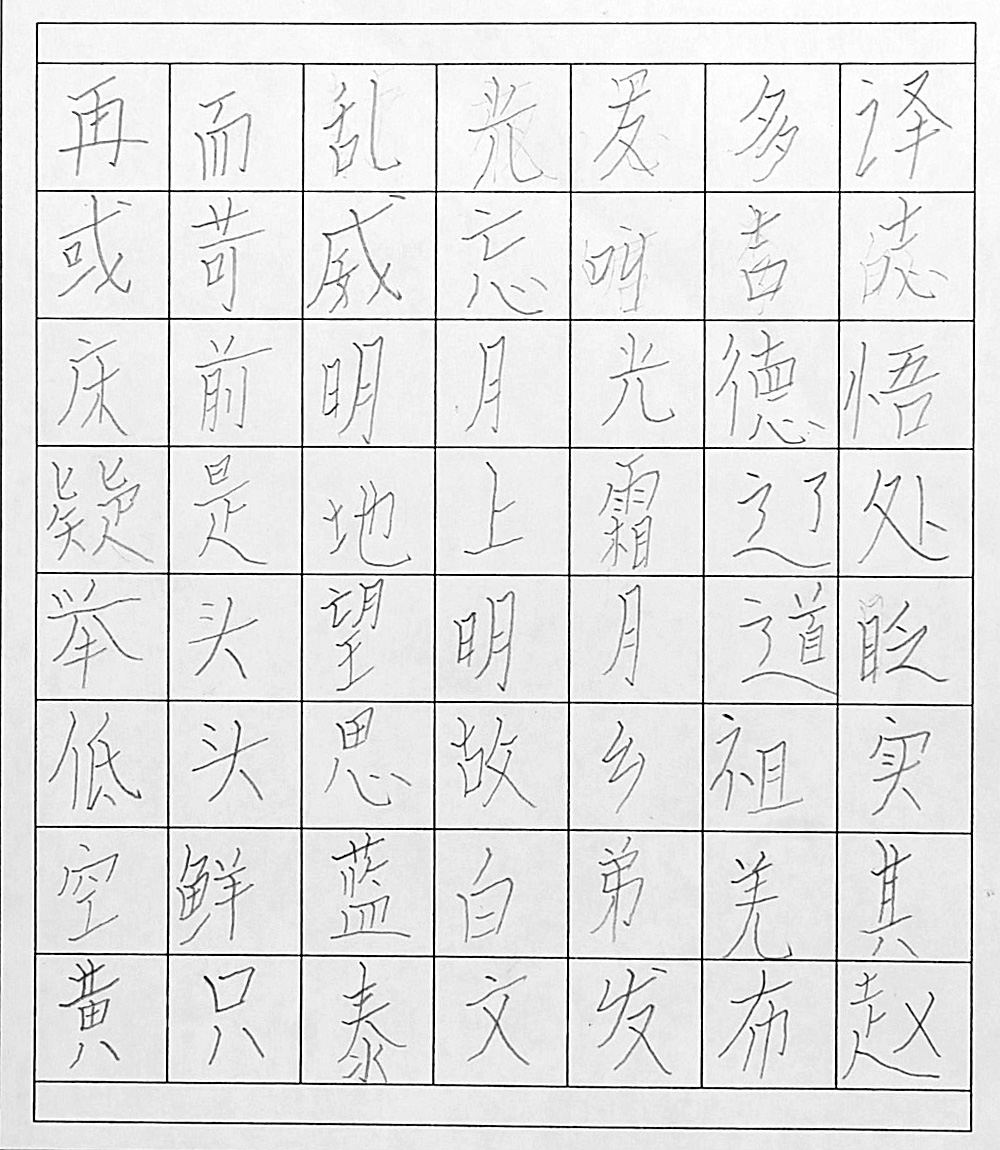 再而乱光爱多译
或苛威忘明喜
床前明月光德悟
疑是地上霜辽处
举头望明月道眨
低头思故乡祖实
空鲜蓝白弟羌其
黄只泰文发布赵